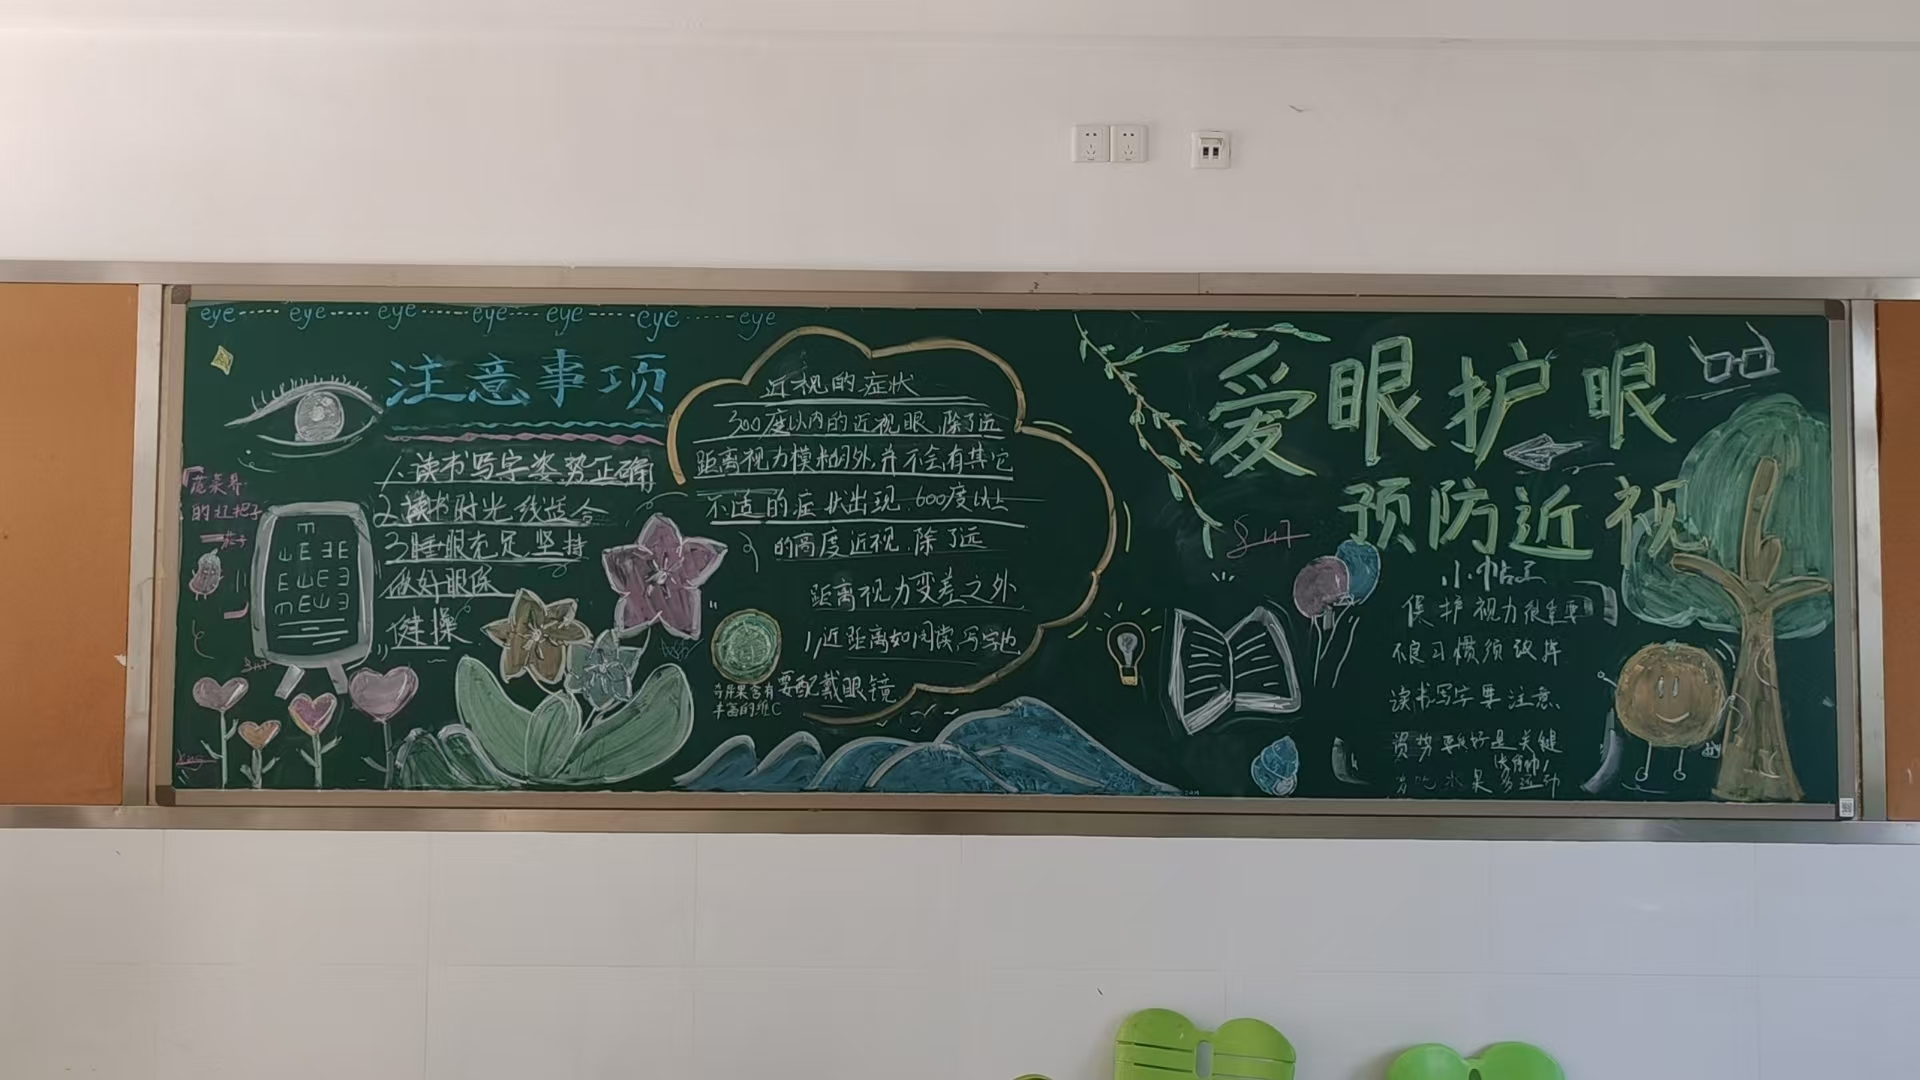 eye-----eye-----eye-----eye----eye----eye-----eye
注意事项
1、读书写字姿势正确
2、读书时光线适合
3、睡眠充足,坚持
做好眼保
健操
蔬菜界
的扛把子
茄子
E
E E E E
E E E E
E E E E
近视的症状
300度以内的近视眼,除了远
距离视力模糊外,并不会有其它
不适的症状出现,600度以上
的高度近视,除了远
距离视力变差之外
1,近距离如阅读,写字也
要配戴眼镜
奇异果含有
丰富的维C
爱眼护眼
预防近视
小帖士
保护视力很重要
不良习惯须改掉
读书写字要注意
姿势要好是关键
多吃水果多运动